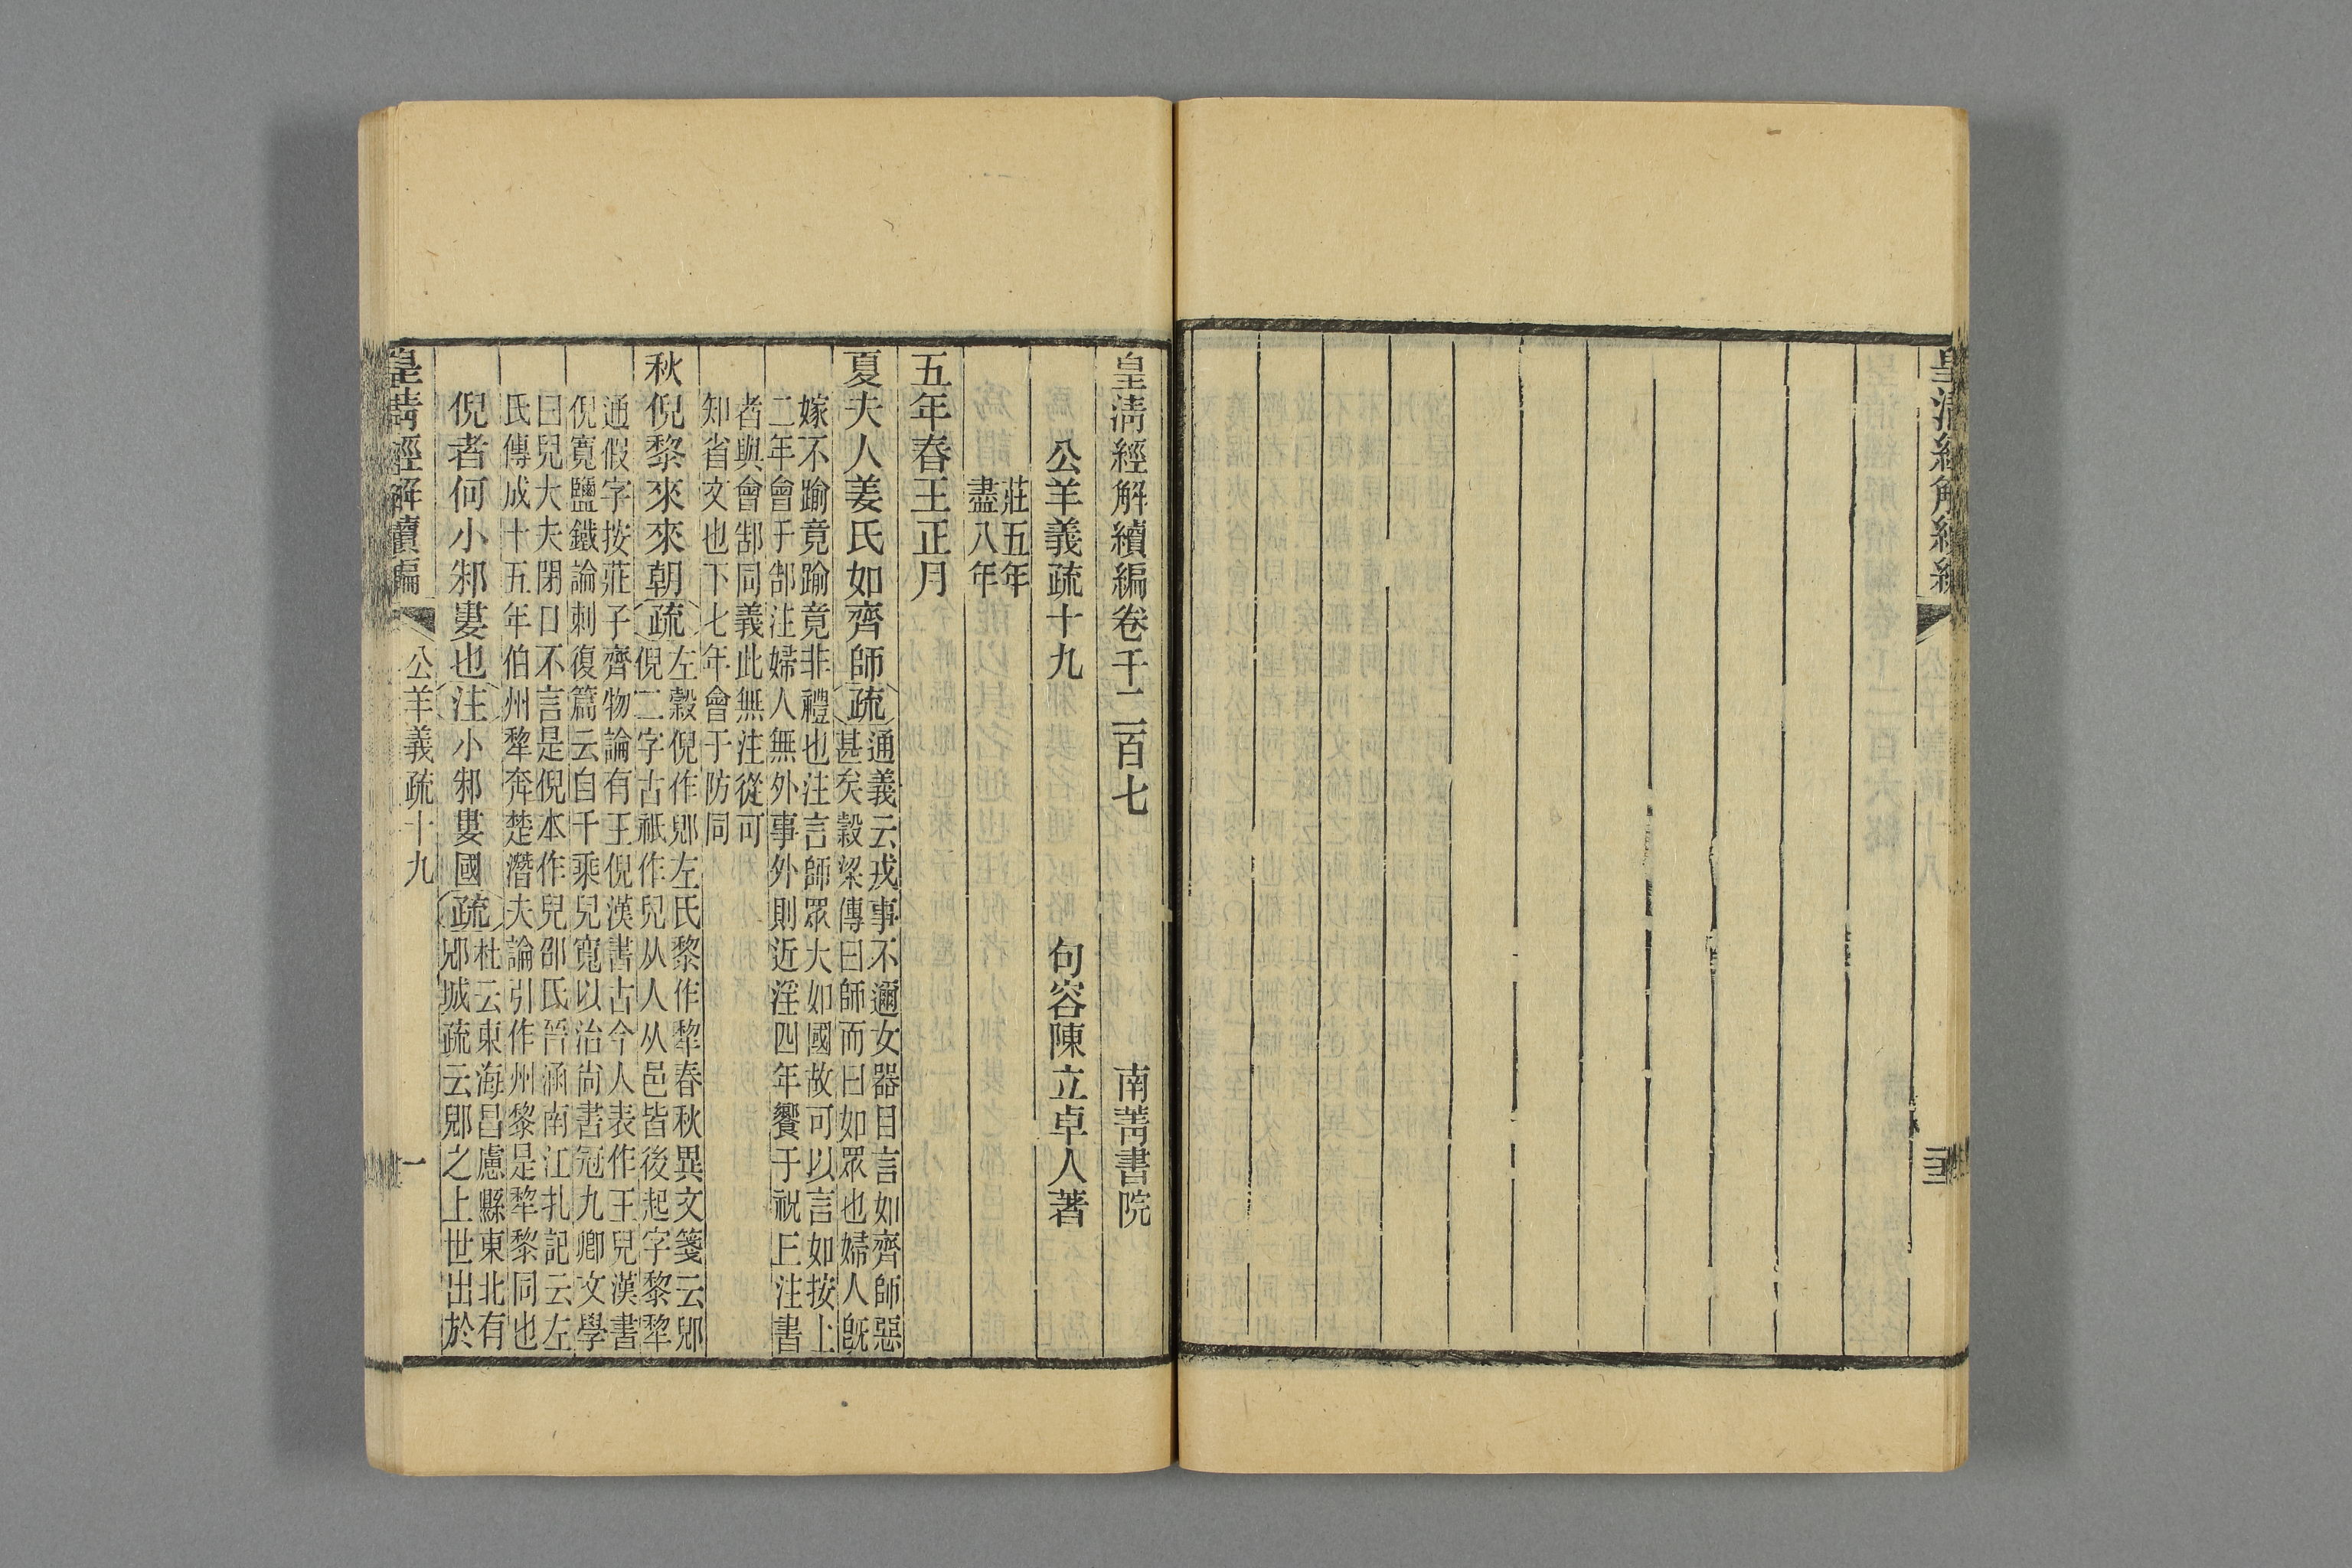 皇清經解續編卷千二百七　南菁書院
公羊義疏十九　句容陳立卓人著
莊五年
盡八年
五年春王正月
夏夫人姜氏如齊師疏
通義云戎事不邇女器目言如齊師惡
甚矣穀梁傳曰師而曰如眾也婦人旣
嫁不踰竟踰竟非禮也注言師眾大如國故可以言如按上
二年會于郜注婦人無外事外則近淫四年饗于祝丘注書
者與會郜同義此無注從可
知省文也下七年會于防同
秋倪黎來來朝疏
左穀倪作郳左氏黎作犂春秋異文箋云郳
倪二字古祇作兒从人从邑皆後起字黎犂
通假字按莊子齊物論有王倪漢書古今人表作王兒漢書
倪寬鹽鐵論刺復篇云自千乘兒寬以治尚書冠九卿文學
曰兒大夫閉口不言是倪本作兒邵氏晉涵南江札記云左
氏傳成十五年伯州犂奔楚潛夫論引作州黎是犂黎同也
倪者何小邾婁也注小邾婁國疏
杜云東海昌慮縣東北有
郳城疏云郳之上世出於
皇清經解續編　公羊義疏十九　一